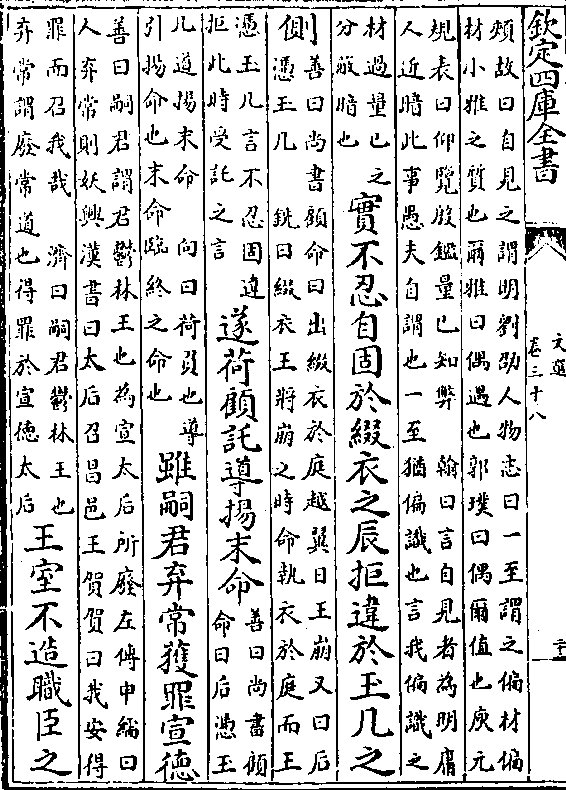 欽定四庫全書
文選
卷三十八
二十一
頰故曰自見之謂明劉劭人物志曰一至謂之偏材偏
材小雅之質也爾雅曰偶遇也郭璞曰偶爾值也庾元
規表曰仰覽殷鑑量已知弊 翰曰言自見者為明庸
人近暗此事愚夫自謂也一至猶偏識也言我偏識之
材過量已之
分蔽暗也
實不忍自固於綴衣之辰拒違於玉几之
側
善曰尚書顧命曰出綴衣於庭越翼日王崩又曰后
憑玉几 銑曰綴衣王將崩之時命執衣於庭而王
憑玉几言不忍固違
拒此時受託之言
遂荷顧託導揚末命
善曰尚書顧
命曰后憑玉
几道揚末命 向曰荷負也導
引揚命也末命臨終之命也
雖嗣君弃常獲罪宣德
善曰嗣君謂君鬱林王也為宣太后所廢左傳申繻曰
人弃常則妖興漢書曰太后召昌邑王賀賀曰我安得
罪而召我哉 濟曰嗣君鬱林王也
弃常謂廢常道也得罪於宣德太后
王室不造職臣之